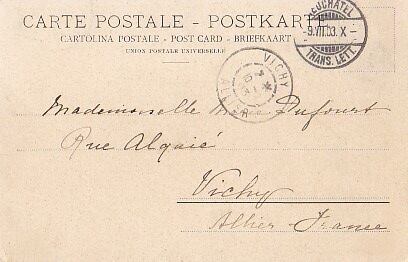 CARTE POSTALE - POSTKARTE
CARTOLINA POSTALE - POST CARD - BRIEFKAART
UNION POSTALE UNIVERSELLE
NEUCHATEL
-9.VII.03.X-
TRANS. LETT.
VICHY
ALLIER
Mademoiselle Dufourt
Rue Alquié
Vichy
Allier-France